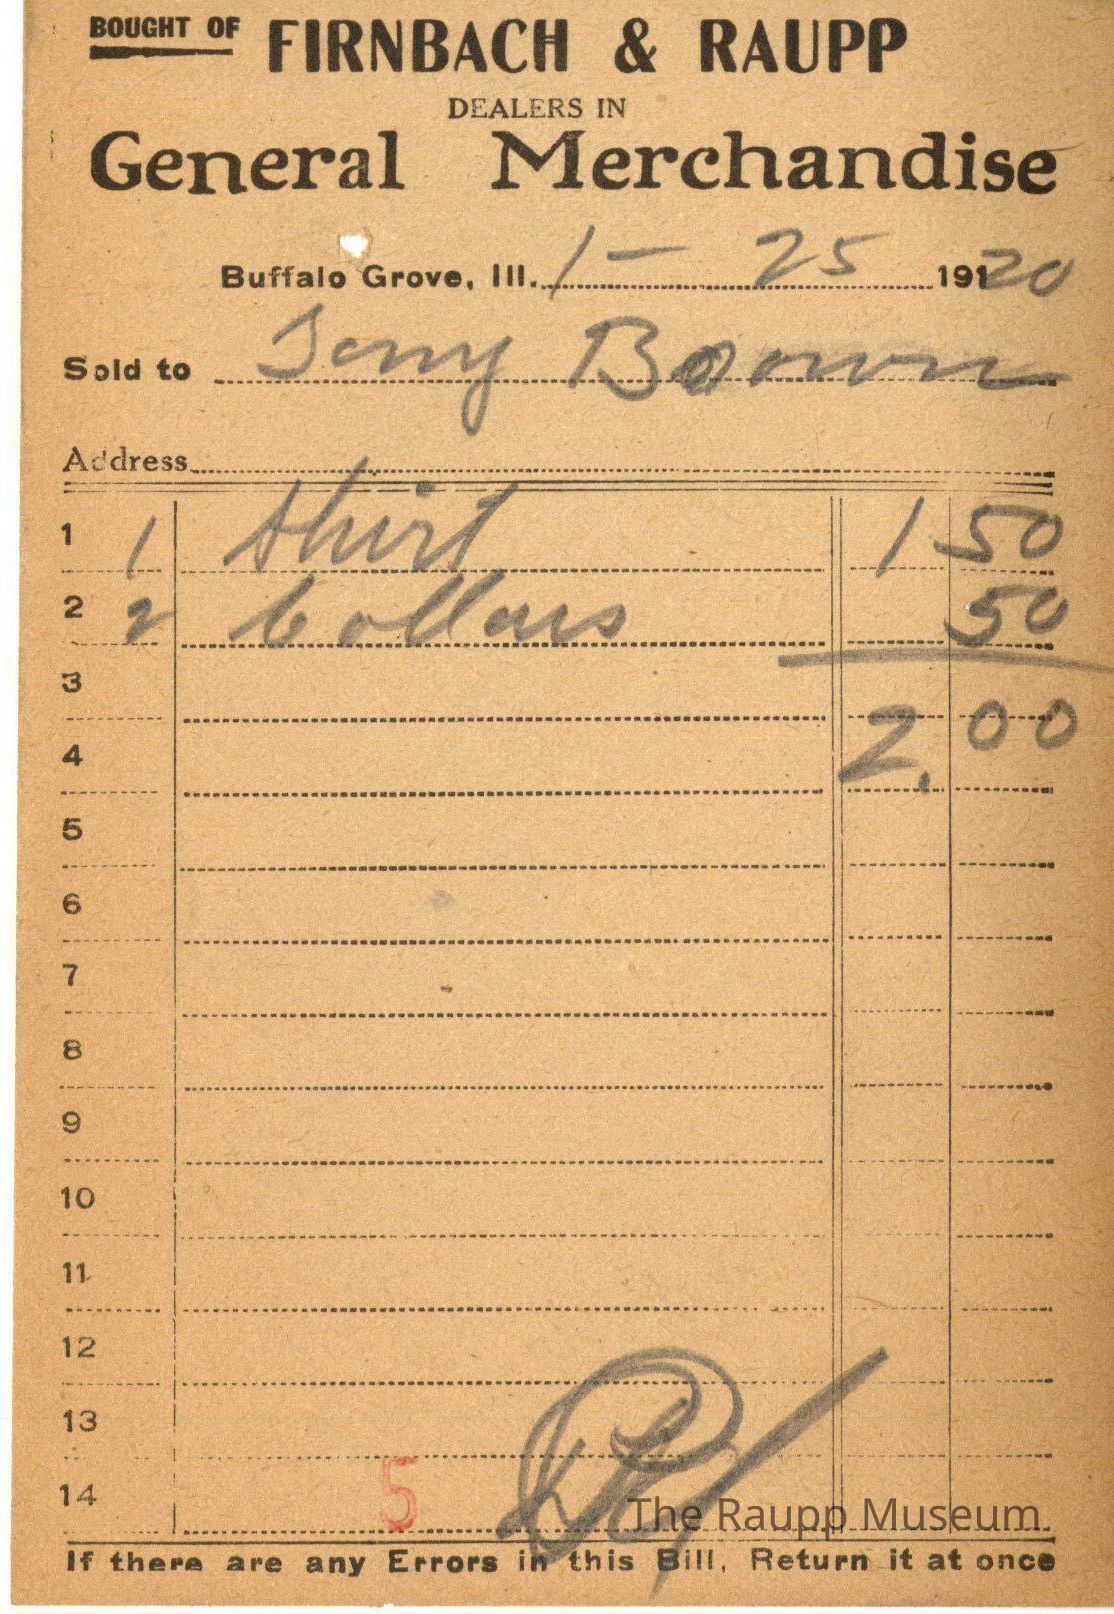 BOUGHT OF FIRNBACH & RAUPP
DEALERS IN
General Merchandise
Buffalo Grove, Ill. 1 - 25 19120
Sold to Tony Boown
Address
1 1 Shirt 1 50
2 2 Collars 50
3
4 2.00
5
6
7
8
9
10
11
12
13
14 5
The Raupp Museum
If there are any Errors in this Bill, Return it at once